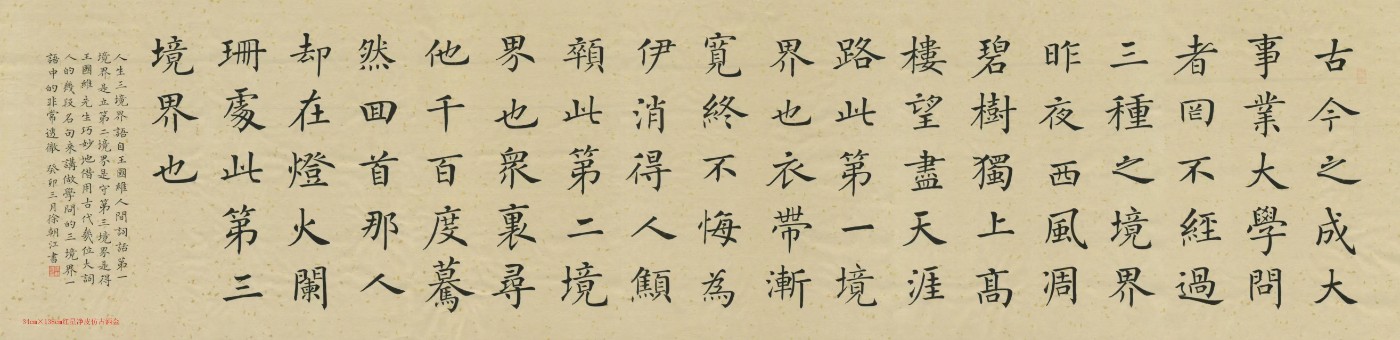 古今之成大
事業大學問
者罔不經過
三種之境界
昨夜西風凋
碧樹獨上高
樓望盡天涯
路此第一境
界也衣帶漸
寬終不悔為
伊消得人顦
顇此第二境
界也眾裏尋
他千百度驀
然回首那人
却在燈火闌
珊處此第三
境界也
人生三境界語自王國維人間詞話第一
境界是立第二境界是守第三境界是得
王國維先生巧妙地借用古代幾位大詞
人的幾段名句來講做學問的三境界一
語中的非常透徹 癸卯三月徐朝江書